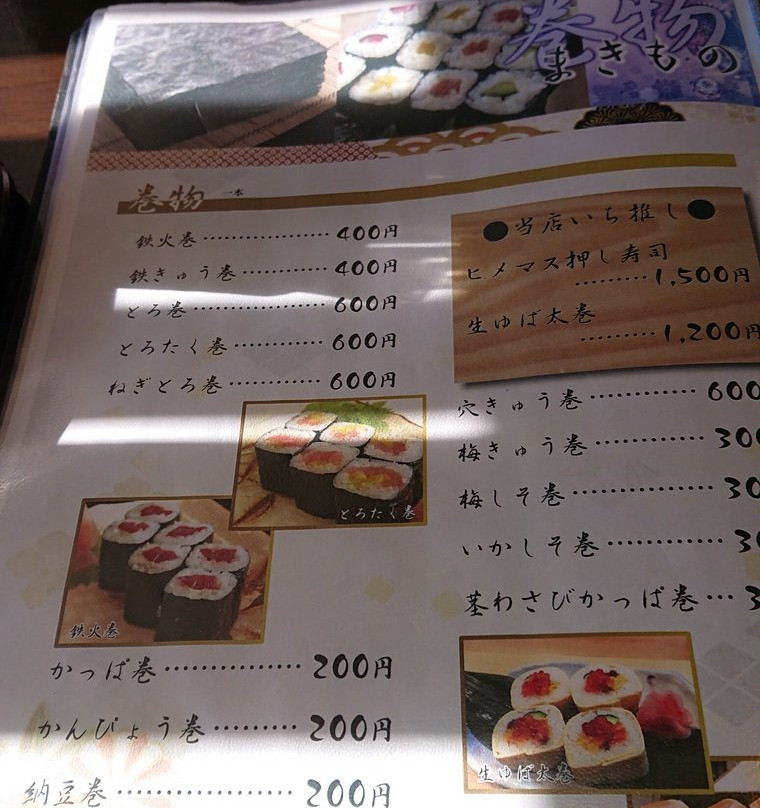 巻物
まきもの
巻物 一本
鉄火巻 400円
鉄きゅう巻 400円
とろ巻 600円
とろたく巻 600円
ねぎとろ巻 600円
とろたく巻
鉄火巻
かっぱ巻 200円
かんぴょう巻 200円
納豆巻 200円
●当店いち推し●
ヒメマス押し寿司
1,500円
生ゆば太巻
1,200円
穴きゅう巻 600
梅きゅう巻 300
梅しそ巻 30
いかしそ巻 30
茎わさびかっぱ巻 3
生ゆば太巻